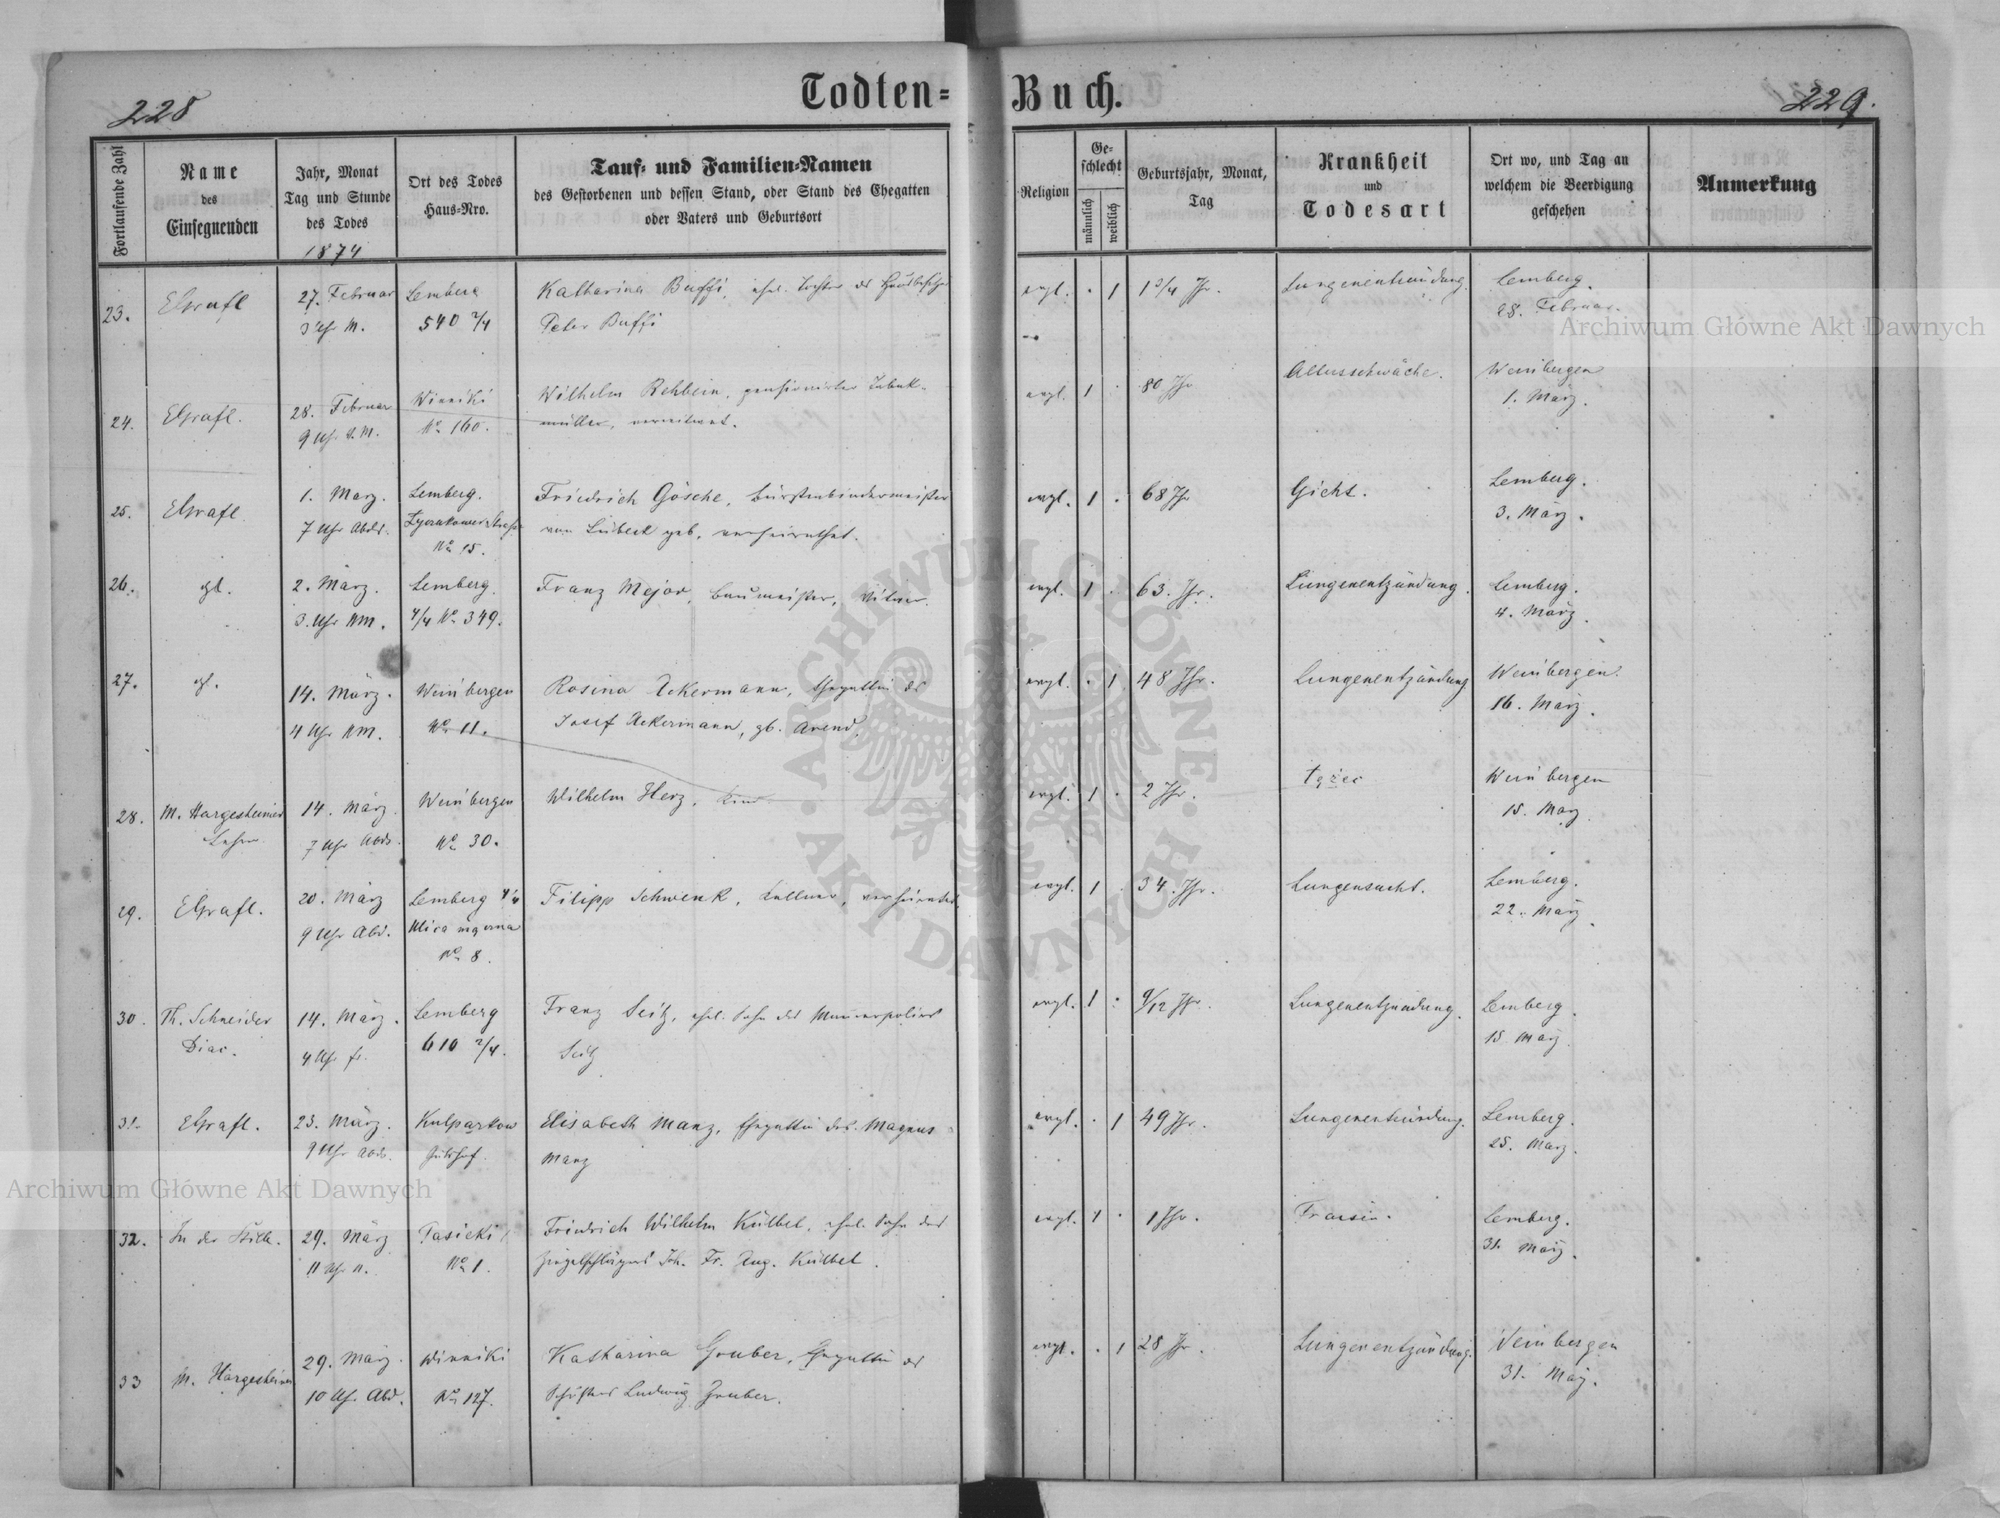 228
Todten-
Buch.
229.
Fortlaufende Zahl
Name
des
Einsegnenden
Jahr, Monat
Tag und Stunde
des Todes
1874
Ort des Todes
Haus-Nro.
Tauf- und Familien-Namen
des Gestorbenen und dessen Stand, oder Stand des Ehegatten
oder Vaters und Geburtsort
Religion
Ge-
schlecht
männlich
weiblich
Geburtsjahr, Monat,
Tag
Krankheit
und
Todesart
Ort wo, und Tag an
welchem die Beerdigung
geschehen
Anmerkung
23.
EGrafl
27. Februar
3 Uhr M.
Lemberg
540 2/4
Katharina Buffi, ehel. Tochter des
Peter Buffi
evgl. . 1
1 3/4 Jhr.
Lungenentzündung.
Lemberg.
28. Februar.
24.
EGrafl.
28. Februar
9 Uhr
Winniki
No 160.
Wilhelm Rehbein, pensionirter Tabak-
müller, verwitwet.
evgl. 1 .
80 Jhr
Altersschwäche.
Weinbergen
1. März.
25.
EGrafl
1. März.
7 Uhr Abds.
Lemberg.
Strasse
No 15.
Friedrich Gösche, Bürstenbindermeister
von Lübeck geb. verheirathet.
evgl. 1 .
68 Jhr
Gicht.
Lemberg.
3. März.
26.
2. März.
3. Uhr NM.
Lemberg.
4/4 No 349.
Franz Mejor, Baumeister, Witwer.
evgl. 1 .
63. Jhr.
Lungenentzündung.
Lemberg.
4. März.
27.
14. März.
4 Uhr NM.
Weinbergen
No 11.
Rosina Ackermann, Ehegattin des
Josef Ackermann, gb. Arend.
evgl. . 1
48 Jhr.
Lungenentzündung.
Weinbergen.
16. März.
28.
M. Hargesheimer
Lehrer
14. März.
7 Uhr Abds.
Weinbergen
No 30.
Wilhelm Herz, Kind.
evgl. 1 .
2 Jhr.
tężec
Weinbergen
15. März
29.
EGrafl.
20. März
9 Uhr Abd.
Lemberg 4/4
No 8.
Filipp Schwenk, Kellner, verheiratet.
evgl. 1 .
34. Jhr.
Lungensucht.
Lemberg.
22. März.
30.
Th. Schneider
Diac.
14. März.
4 Uhr fr.
Lemberg
610 2/4.
Franz Seitz, ehel. Sohn des Maurerpoliers
Seitz
evgl. 1 .
9/12 Jhr.
Lungenentzündung.
Lemberg.
15 März
31.
EGrafl.
23. März.
9 Uhr Abds.
Kulparkow
Gutshof.
Elisabeth Manz, Ehegattin des Magnus
Manz
evgl. . 1
49 Jhr.
Lungenentzündung.
Lemberg.
25. März.
32.
In der Stille.
29. März
11 Uhr
Pasieki
No 1.
Friedrich Wilhelm Külbel, ehel. Sohn des
Ziegelschlägers Joh. Fr. Aug. Külbel.
evgl. 1 .
1 Jhr.
Fraisen.
Lemberg.
31. März.
33
M. Hargesheimer
29. März.
10 Uhr Abd.
Winniki
No 127.
Katharina Gruber, Ehegattin des
Schusters Ludwig Gruber.
evgl. . 1
28 Jhr.
Lungenentzündung.
Weinbergen
31. März.
Archiwum Główne Akt Dawnych
ARCHIWUM GŁÓWNE
AKT DAWNYCH
Archiwum Główne Akt Dawnych